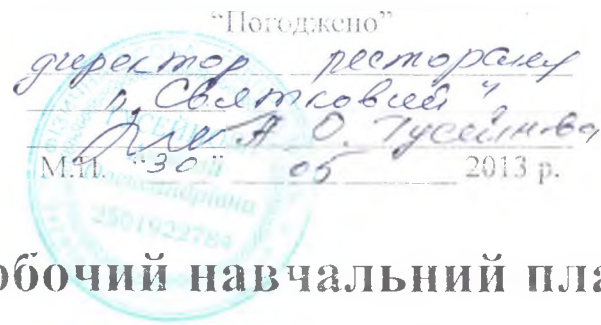 “Погоджено”
директор ресторану
„Святковий“
А О. Гусейнова
М.П. “30” 05 2013 р.
2501922784
обочий навчальний пла